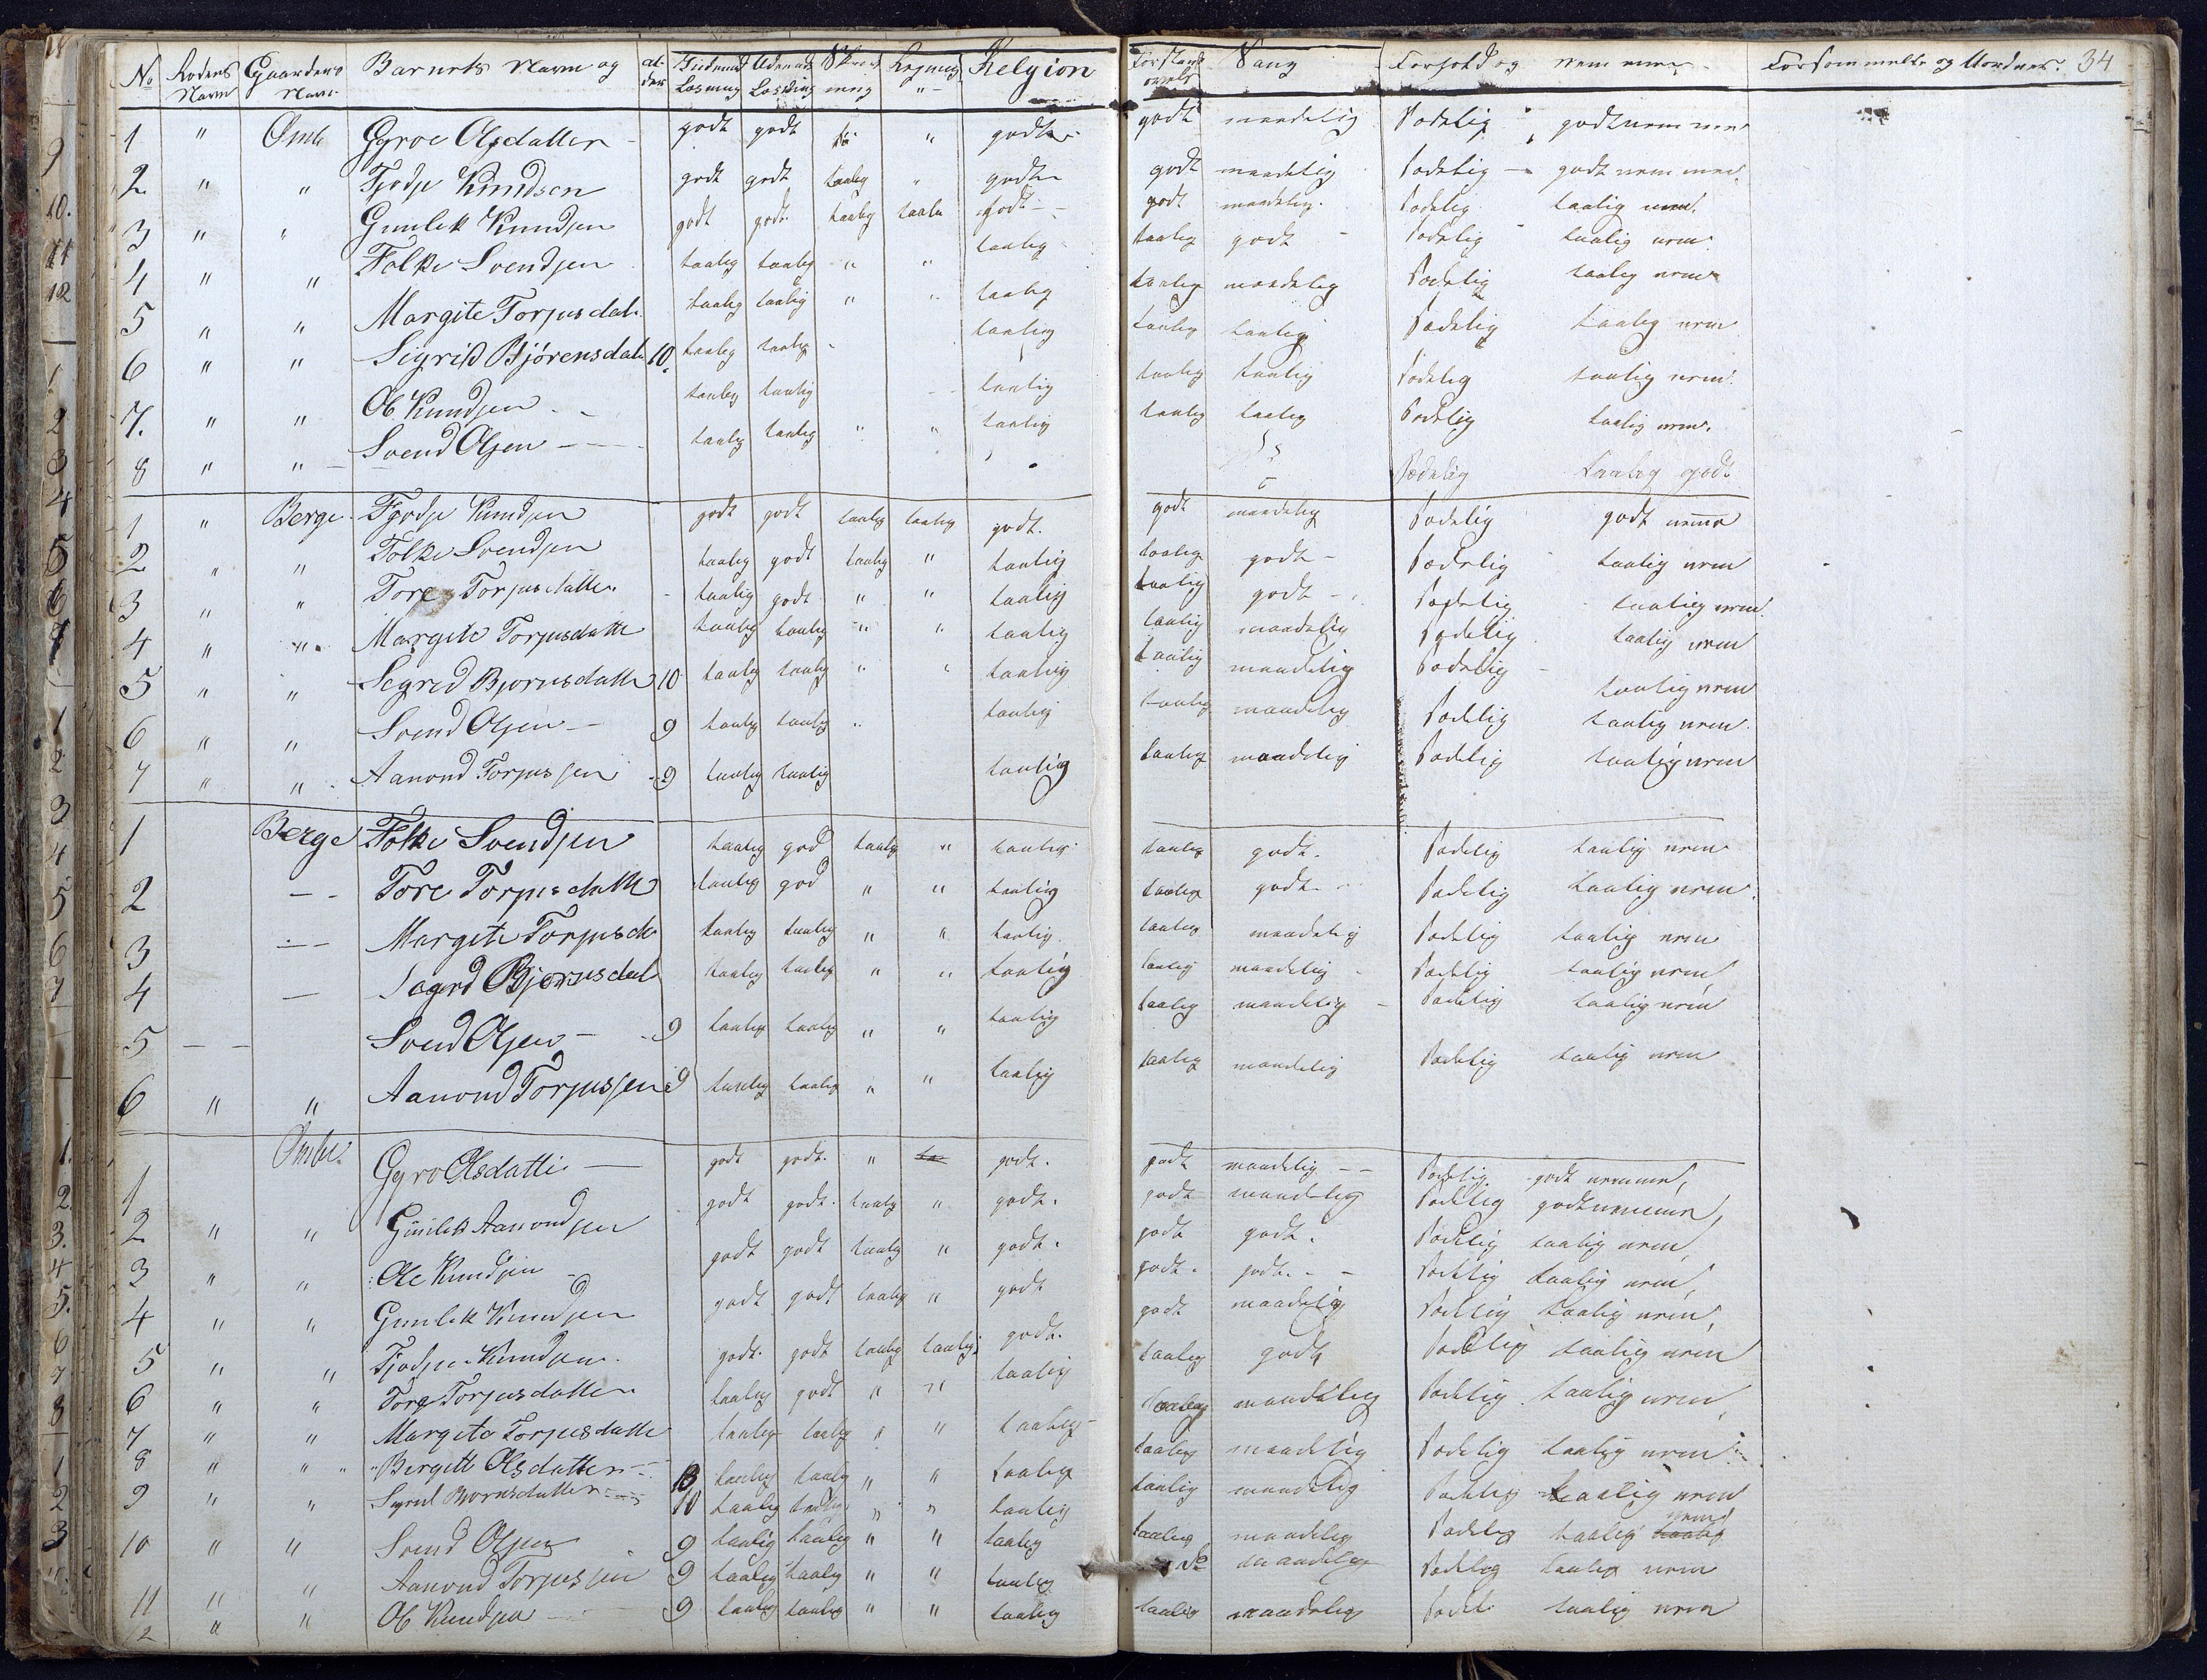 No Rodens Navn Gaardens Navn Barnets Navn og al-der Indenad Læsning Udenad Læsning Skriv-ning Regning Relgion Forstands øvels Sang Forhold og nemme Forsømmelse og Uordner. 34
1 " Omli Gyroe Olsdatter godt godt " godt godt maadelig Sædelig godt nemme
2 " " Tjodje Knudsen godt godt taalig " godt godt maadelig Sædelig godt nemme
3 " " Gunlek Knudsen godt godt taalig taalig godt godt maadelig Sædelig taalig nem
4 " " Folke Svendsen taalig taalig " " taalig taalig godt Sædelig taalig nem
5 " " Margite Torjusdat taalig taalig " " taalig taalig maadelig Sædelig taalig nem
6 " " Sigrid Bjørensdat 10 taalig taalig " taalig taalig taalig Sædelig taalig nem
7. " " Ol Knudsen taalig taalig taalig taalig taalig Sædelig taalig nem
8 " " Svend Olsen taalig taalig " " taalig taalig taalig Sædelig taalig nem
Sædelig taalig godt
1 " Berge Tjodje Knudsen godt godt taalig taalig godt. godt maadelig Sædelig godt nemme
2 " " Folke Svendsen taalig godt taalig " taalig taalig godt Sædelig taalig nem
3 " " Tore Torjusdatter taalig godt " " taalig taalig godt Sædelig taalig nem
4 " " Margite Torjusdatte taalig taalig " " taalig taalig maadelig Sædelig taalig nem
5 " " Segred Bjornsdatte 10 taalig taalig " " taalig taalig maadelig Sædelig taalig nem
6 " " Svend Olsen 9 taalig taalig " taalig taalig maadelig Sædelig taalig nem
7 " " Aanond Torjussen 9 taalig taalig taalig taalig maadelig Sædelig taalig nem
1 Berge Folke Svendsen taalig god taalig " taalig taalig godt. Sædelig taalig nem
2 — Tore Torjusdatte taalig god " " taalig taalig godt Sædelig taalig nem
3 — Margite Torjusda taalig taalig " " taalig taalig maadelig Sædelig taalig nem
4 — Sogrd Bjørnsdat taalig taalig " " taalig taalig maadelig Sædelig taalig nem
5 — — Svend Olsen 9 taalig taalig " " taalig taalig maadelig Sædelig taalig nem
6 " " Aanond Torjussen 9 taalig taalig " " taalig taalig maadelig Sædelig taalig nem
1 Omli Gyro Olsdatte godt godt. " godt. godt maadelig Sædelig godt nemme
2 " " Gunlek Aanondsen godt godt. taalig " godt. godt maadelig Sædelig godt nemme
3 " " Ole Knudsen godt godt taalig " godt. godt godt. Sædelig taalig nem
4 " " Gunlek Knudsen godt godt taalig " godt godt. godt. Sædelig taalig nem
5 " " Tjodje Knudsen godt. godt taalig taalig godt. godt maadelig Sædelig taalig nem
6 " " Tore Torjusdatter taalig godt " " taalig taalig godt Sædelig taalig nem
7 " " Margite Torjusdatte taalig taalig " " taalig taalig maadelig Sædelig taalig nem
8 " " Bergett Olsdatter 13 taalig taalig " " taalig taalig maadelig Sædelig taalig nem
9 " " Sigred Bjornsdatter 10 taalig taalig " " taalig taalig maadelig Sædelig taalig nem
10 " " Svend Olsen 9 taalig taalig " " taalig taalig maadelig Sædelig taalig nem
11 " " Aanond Torjussen 9 taalig taalig " " taalig do maadelig Sædelig taalig nem
12 " " Ol Knudsen 9 taalig taalig " " taalig taalig maadelig Sædel taalig nem